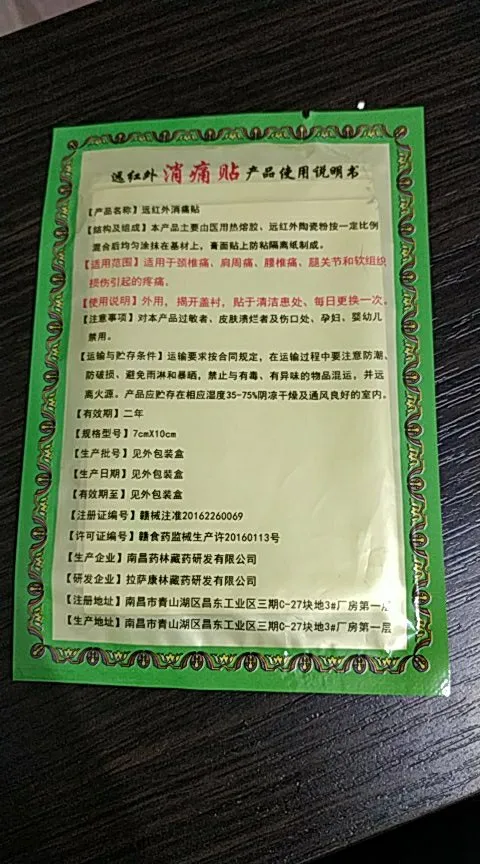 远红外消痛贴产品使用说明书
【产品名称】远红外消痛贴
【结构及组成】本产品主要由医用热熔胶、远红外陶瓷粉按一定比例
混合后均匀涂抹在基材上，膏面贴上防粘隔离纸制成。
【适用范围】适用于颈椎痛、肩周痛、腰椎痛、腿关节和软组织
损伤引起的疼痛。
【使用说明】外用，揭开盖衬，贴于清洁患处、每日更换一次。
【注意事项】对本产品过敏者、皮肤溃烂者及伤口处、孕妇、婴幼儿
禁用。
【运输与贮存条件】运输要求按合同规定，在运输过程中要注意防潮、
防破损、避免雨淋和暴晒，禁止与有毒、有异味的物品混运，并远
离火源。产品应贮存在相应湿度35-75%阴凉干燥及通风良好的室内。
【有效期】二年
【规格型号】7cmX10cm
【生产批号】见外包装盒
【生产日期】见外包装盒
【有效期至】见外包装盒
【注册证编号】赣械注准20162260069
【许可证编号】赣食药监械生产许20160113号
【生产企业】南昌药林藏药研发有限公司
【研发企业】拉萨康林藏药研发有限公司
【注册地址】南昌市青山湖区昌东工业区三期C-27块地3#厂房第一层
【生产地址】南昌市青山湖区昌东工业区三期C-27块地3#厂房第一层